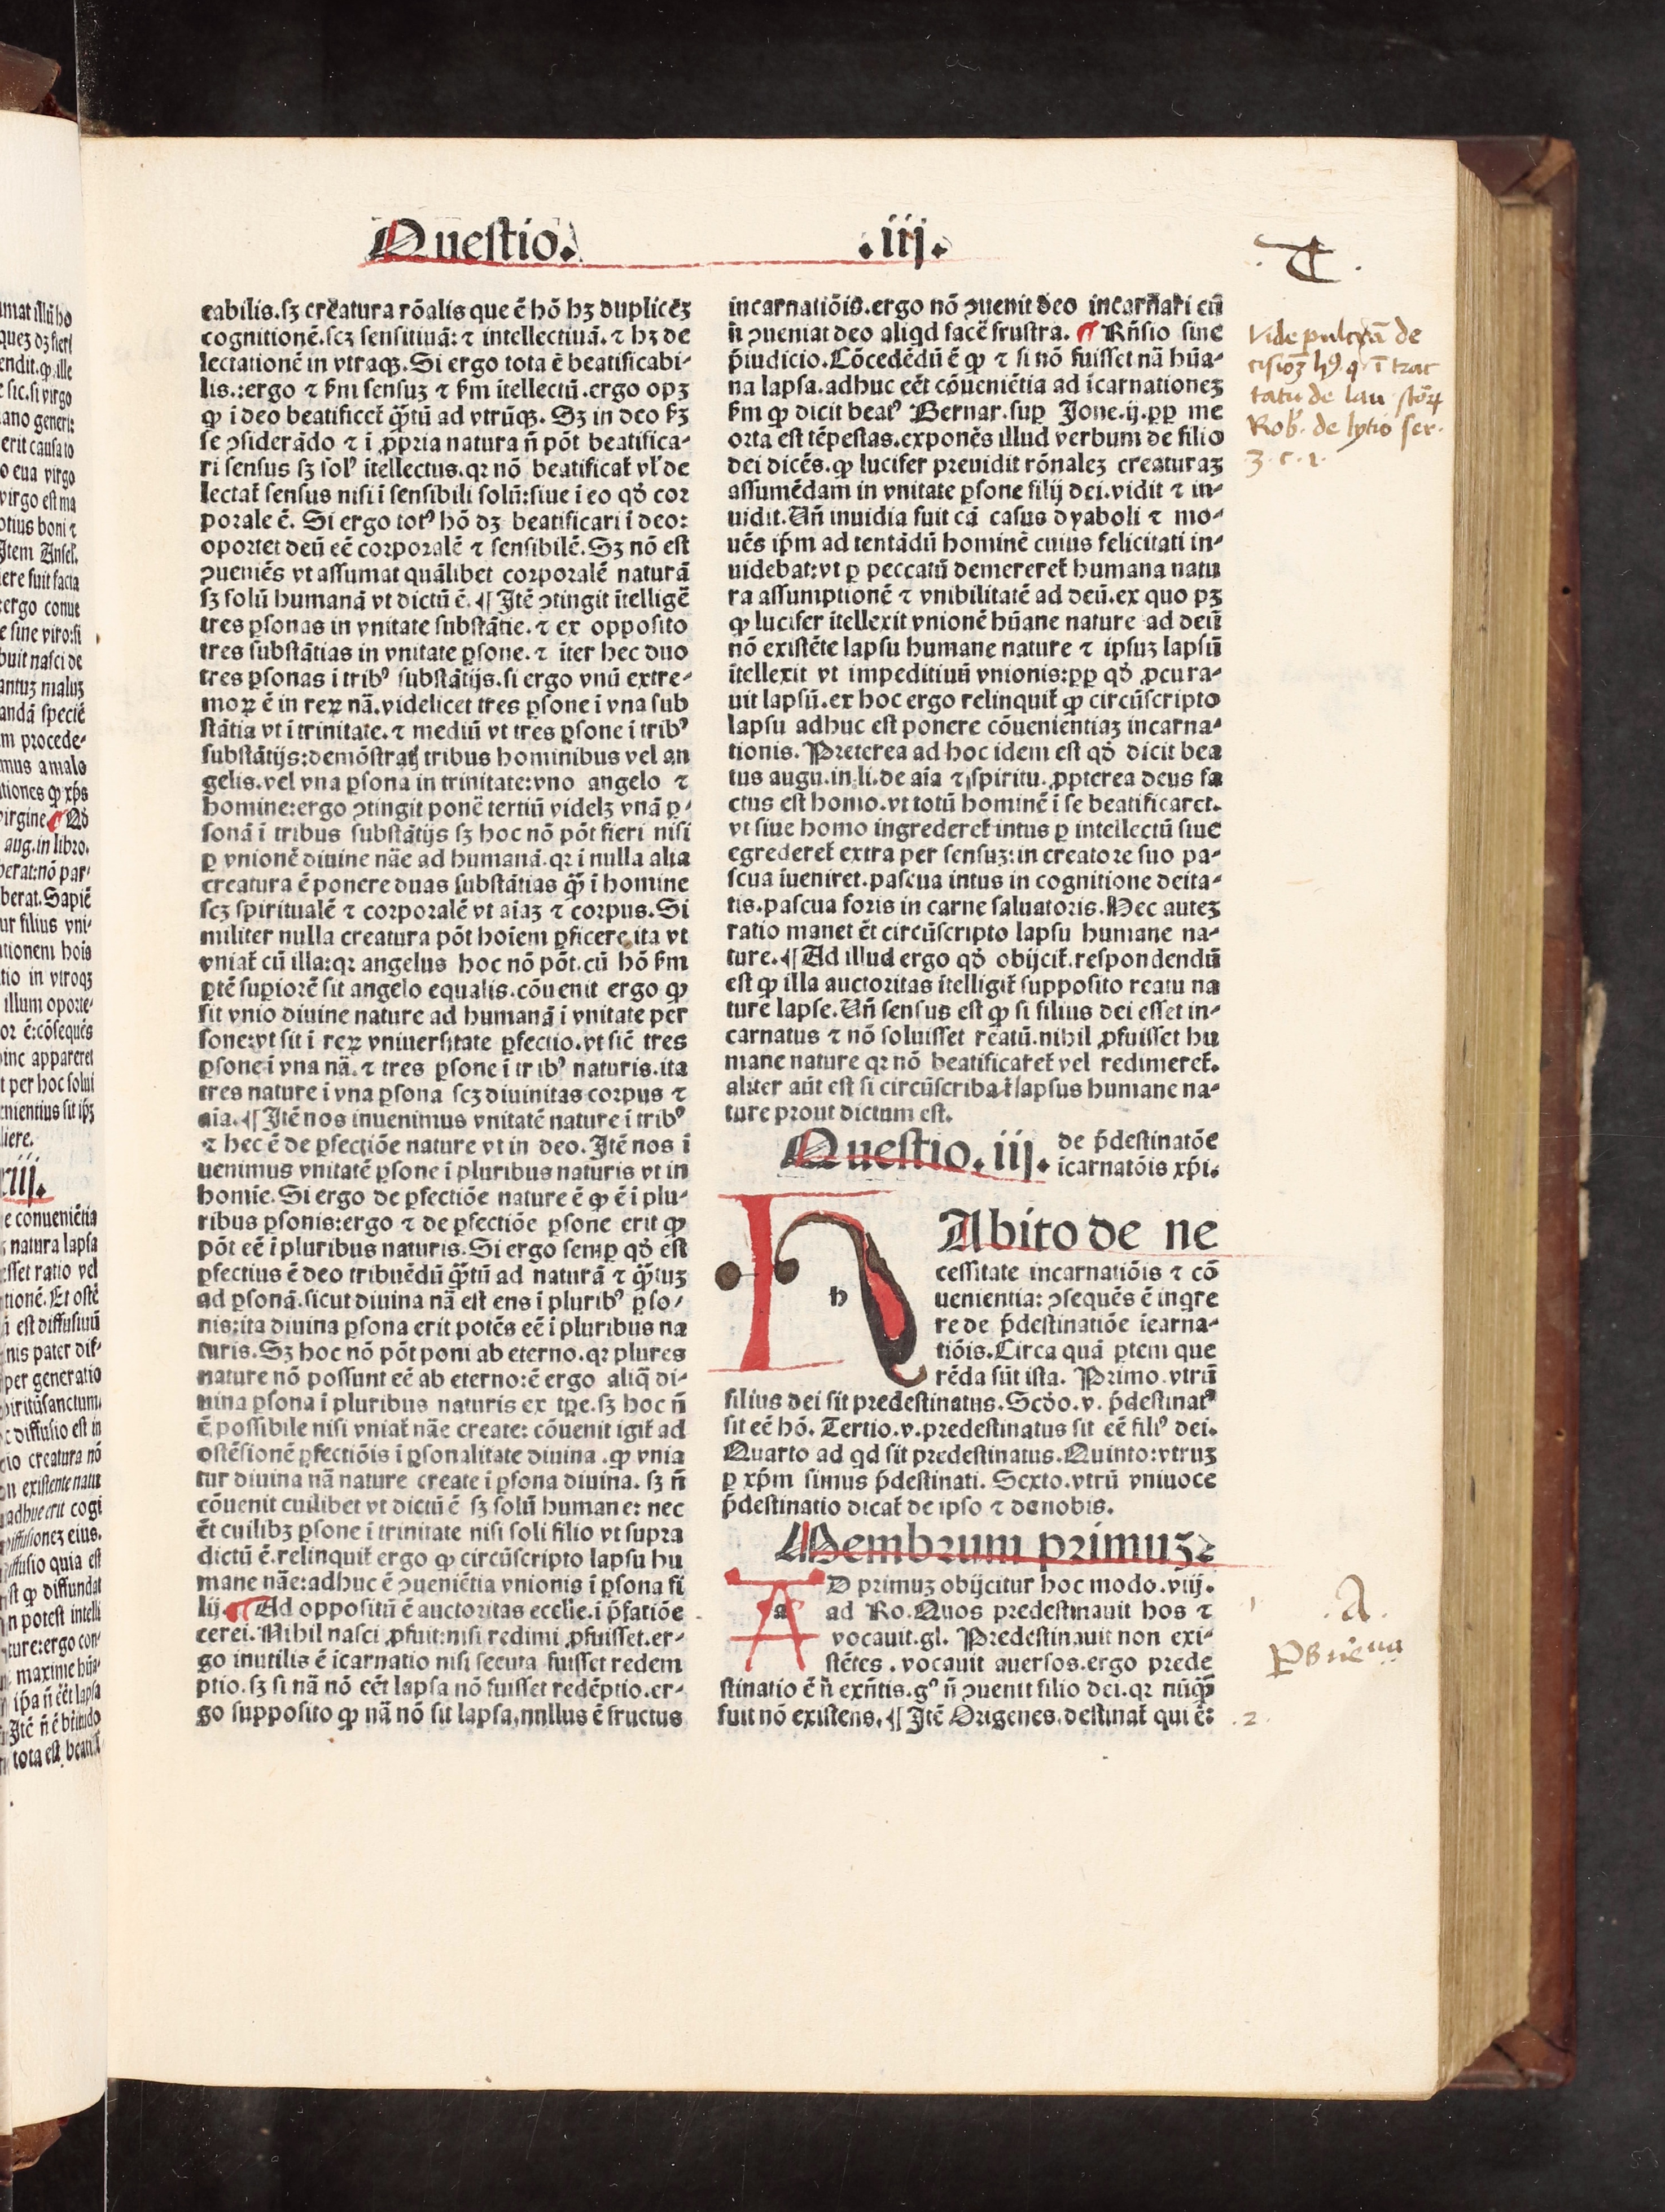 Questio. .iij.
eabilis.sꝫ creatura rõalis que ē hõ hꝫ duplicēꝫ
cognitionē.scꝫ sensitiuã:⁊ intellectiuã.⁊ hꝫ de
lectationē in vtraqꝫ. Si ergo tota ē beatificabi-
lis.:ergo ⁊ ẜm sensuꝫ ⁊ ẜm ītellectũ.ergo opꝫ
ꝙ i deo beatificeť q̃ꝫtũ ad vtrũqꝫ. Sꝫ in deo ẜꝫ
se ↄsiderãdo ⁊ i ꝓpria natura ñ põt beatifica-
ri sensus sꝫ solꝰ ītellectus.qꝛ nõ beatificať vľ de
lectať sensus nisi i sensibili solũ:siue i eo qď cor
porale ē. Si ergo totꝰ hõ dꝫ beatificari i deo:
oportet deũ eē corporalē ⁊ sensibilē. Sꝫ nõ est
ↄueniēs vt assumat quãlibet corporalē naturã
sꝫ solũ humanã vt dictũ ē.¶ Itē ↄtingit ītelligē
tres ꝑsonas in vnitate substãtie.⁊ ex opposito
tres substãtias in vnitate ꝑsone.⁊ iter hec duo
tres ꝑsonas i tribꝰ substãtijs.si ergo vnũ extre-
moꝝ ē in reꝝ nã.videlicet tres ꝑsone i vna sub
stãtia vt i trinitate.⁊ mediũ vt tres ꝑsone i tribꝰ
substãtijs:demõstratꝭ tribus hominibus vel an
gelis.vel vna ꝑsona in trinitate:vno angelo ⁊
homine:ergo ↄtingit ponē tertiũ videlꝫ vnã ꝑ-
sonã i tribus substãtijs sꝫ hoc nõ põt fieri nisi
ꝑ vnionē diuine nãe ad humanã.qꝛ i nulla alia
creatura ē ponere duas substãtias q̃ꝫ i homine
scꝫ spiritualē ⁊ corporalē vt aiaꝫ ⁊ corpus. Si
militer nulla creatura põt hoiem ꝑficere ita vt
vniať cũ illa:qꝛ angelus hoc nõ põt.cũ hõ ẜm
ꝑtē supiorē sit angelo equalis.cõuenit ergo ꝙ
sit vnio diuine nature ad humanã i vnitate per
sone:vt sit i reꝝ vniuersitate ꝑfectio.vt sic̄ tres
ꝑsone i vna nã.⁊ tres ꝑsone i tribꝰ naturis.ita
tres nature i vna ꝑsona scꝫ diuinitas corpus ⁊
aia.¶ Itē nos inuenimus vnitatē nature i tribꝰ
⁊ hec ē de ꝑfectiõe nature vt in deo. Itē nos i
uenimus vnitatē ꝑsone i pluribus naturis vt in
homie. Si ergo de ꝑfectiõe nature ē ꝙ ē i plu-
ribus ꝑsonis:ergo ⁊ de ꝑfectiõe ꝑsone erit ꝙ
põt eē i pluribus naturis. Si ergo semꝑ qď est
ꝑfectius ē deo tribuēdũ q̃ꝫtũ ad naturã ⁊ q̃ꝫtuꝫ
ad ꝑsonã.sicut diuina nã est ens i pluribꝰ ꝑso-
nis:ita diuina ꝑsona erit potēs eē i pluribus na
turis. Sꝫ hoc nõ põt poni ab eterno.qꝛ plures
nature nõ possunt eē ab eterno:ē ergo aliq̃ di-
uina ꝑsona i pluribus naturis ex tꝑe.sꝫ hoc ñ
ē possibile nisi vniať nãe create: cõuenit igiť ad
ostēsionē ꝑfectiõis i ꝑsonalitate diuina .ꝙ vnia
tur diuina nã nature create i ꝑsona diuina. sꝫ ñ
cõuenit cuilibet vt dictũ ē sꝫ solũ humane: nec
ēt cuilibꝫ ꝑsone i trinitate nisi soli filio vt supra
dictũ ē.relinquiť ergo ꝙ circũscripto lapsu hu
mane nãe:adhuc ē ↄueniētia vnionis i ꝑsona fi
lij. Ad oppositũ ē auctoritas ecclie.i p̄fatiõe
cerei. Nihil nasci ꝓfuit:nisi redimi ꝓfuisset.er-
go inutilis ē icarnatio nisi secuta fuisset redem
ptio.sꝫ si nã nõ eēt lapsa nõ fuisset redēptio.er-
go supposito ꝙ nã nõ sit lapsa,nullus ē fructus
incarnatiõis.ergo nõ ↄuenit deo incarnari cũ
ñ ↄueniat deo aliqd facē frustra. Rñsio sine
p̄iudicio. Cõcedēdũ ē ꝙ ⁊ si nõ fuisset nã hũa-
na lapsa.adhuc eēt cõueniētia ad icarnationeꝫ
ẜm ꝙ dicit beatꝰ Bernar.suꝑ Jone.ij.ꝓꝑ me
orta est tēpestas.exponēs illud verbum de filio
dei dicēs.ꝙ lucifer preuidit rõnaleꝫ creaturaꝫ
assumēdam in vnitate ꝑsone filij dei.vidit ⁊ in-
uidit. Uñ inuidia fuit cã casus dyaboli ⁊ mo-
uēs ip̃m ad tentãdũ hominē cuius felicitati in-
uidebat:vt ꝑ peccatũ demereret humana natu
ra assumptionē ⁊ vnibilitatē ad deũ.ex quo pꝫ
ꝙ lucifer itellexit vnionē hũane nature ad deũ
nõ existēte lapsu humane nature ⁊ ipsuꝫ lapsũ
ītellexit vt impeditiuũ vnionis:ꝓꝑ qď ꝓcura-
uit lapsũ.ex hoc ergo relinquiť ꝙ circũscripto
lapsu adhuc est ponere cõuenientiaꝫ incarna-
tionis. Preterea ad hoc idem est qď dicit bea
tus augu.in.li.de aia ⁊ spiritu.ꝓpterea deus fa
ctus est homo.vt totũ hominē i se beatificaret.
vt siue homo ingrederet intus ꝑ intellectũ siue
egrederet extra per sensuꝫ:in creatore suo pa-
scua iueniret.pascua intus in cognitione deita-
tis.pascua foris in carne saluatoris. Hec auteꝫ
ratio manet ēt circũscripto lapsu humane na-
ture.¶ Ad illud ergo qď obijciť.respondendũ
est ꝙ illa auctoritas itelligiť supposito reatu na
ture lapse. Uñ sensus est ꝙ si filius dei esset in-
carnatus ⁊ nõ soluisset reatũ.nihil ꝓfuisset hu
mane nature qꝛ nõ beatificaret vel redimeret.
aliter aũt est si circũscribať lapsus humane na-
ture prout dictum est.
Questio. iij. de p̄destinatõe
icarnatõis xp̃i.
h Abito de ne
cessitate incarnatiõis ⁊ cõ
uenientia: ↄsequēs ē inqre
re de p̄destinatiõe icarna-
tiõis. Circa quã ꝑtem que
rēda sũt ista. Primo.vtrũ
filius dei sit predestinatus. Scďo. v. p̄destinatꝰ
sit eē hõ. Tertio.v.predestinatus sit eē filiꝰ dei.
Quarto ad qd sit predestinatus. Quinto:vtruꝫ
ꝑ xp̃m simus p̄destinati. Sexto.vtrũ vniuoce
p̄destinatio dicať de ipso ⁊ de nobis.
Membrum primuꝫ
a D primuꝫ obijcitur hoc modo.viij.
ad Ro. Quos predestinauit hos ⁊
vocauit.gl. Predestinauit non exi-
stētes . vocauit auersos.ergo prede
stinatio ē ñ exñtis.gꝰ ñ ↄuenit filio dei.qꝛ nũq̃ꝫ
fuit nõ existens.¶ Itē Origenes.destinať qui ē:
Vide pulcrã de
cisioꝫ hꝰ q. ī trac
tatu de lau
Rob. de lytio ser.
3. c. 1.
.A.
.2.